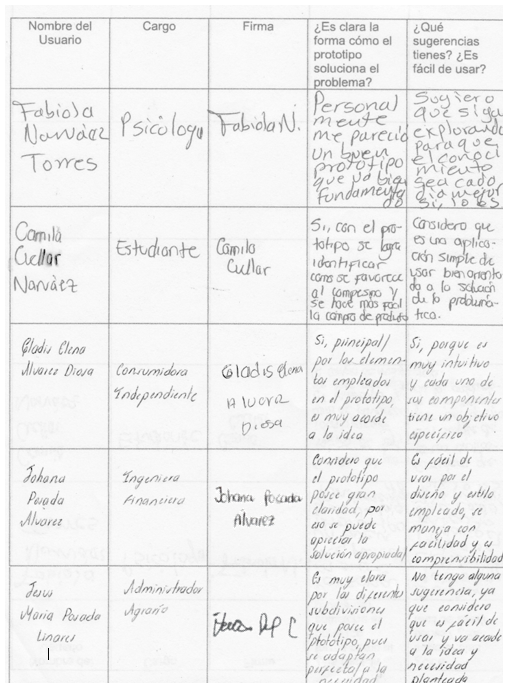 Nombre del
Usuario
Cargo
Firma
¿Es clara la
forma cómo el
prototipo
soluciona el
problema?
¿Qué
sugerencias
tienes? ¿Es
fácil de usar?
Fabiola
Narváez
Torres
Psicóloga
Fabiola N.
Personal
mente
me pareció
un buen
prototipo
que va bien
fundamenta
do
Sugiero
que siga
explorando
para que
el conoci
miento
sea cada
día mejor
si, lo es
Camila
Cuellar
Narváez
Estudiante
Camila
Cullar
Si, con el pro-
totipo se logra
identificar
como se favorece
al campesino y
se hace más fácil
la compra de producto
Considero que
es una aplica-
ción simple de
usar bien orienta
da a la solución
de la problemá-
tica.
Gladis Elena
Alvarez Diosa
Consumidora
Independiente
Gladis Elena
Alvarez
Diosa
Si, principal/
por los elemen-
tos empleados
en el prototipo,
es muy acorde
a la idea
Si, porque es
muy intuitivo
y cada uno de
sus componentes
tiene un objetivo
específico
Johana
Posada
Alvarez
Ingeniera
Financiera
Johana Posada
Alvarez
Considero que
el prototipo
posee gran
claridad, por
eso se puede
apreciar la
solución apropiada
Es fácil de
usar por el
diseño y estilo
empleado, se
maneja con
facilidad y es
comprensibilidad
Jesus
Maria Posada
Linares
Administrador
Agrario
Es muy clara
por las diferentes
subdivisiones
que posee el
prototipo, pues
se adaptan
perfecta/ a la
necesidad
No tengo alguna
sugerencia, ya
que considero
que es fácil de
usar y va acorde
a la idea y
necesidad
planteada